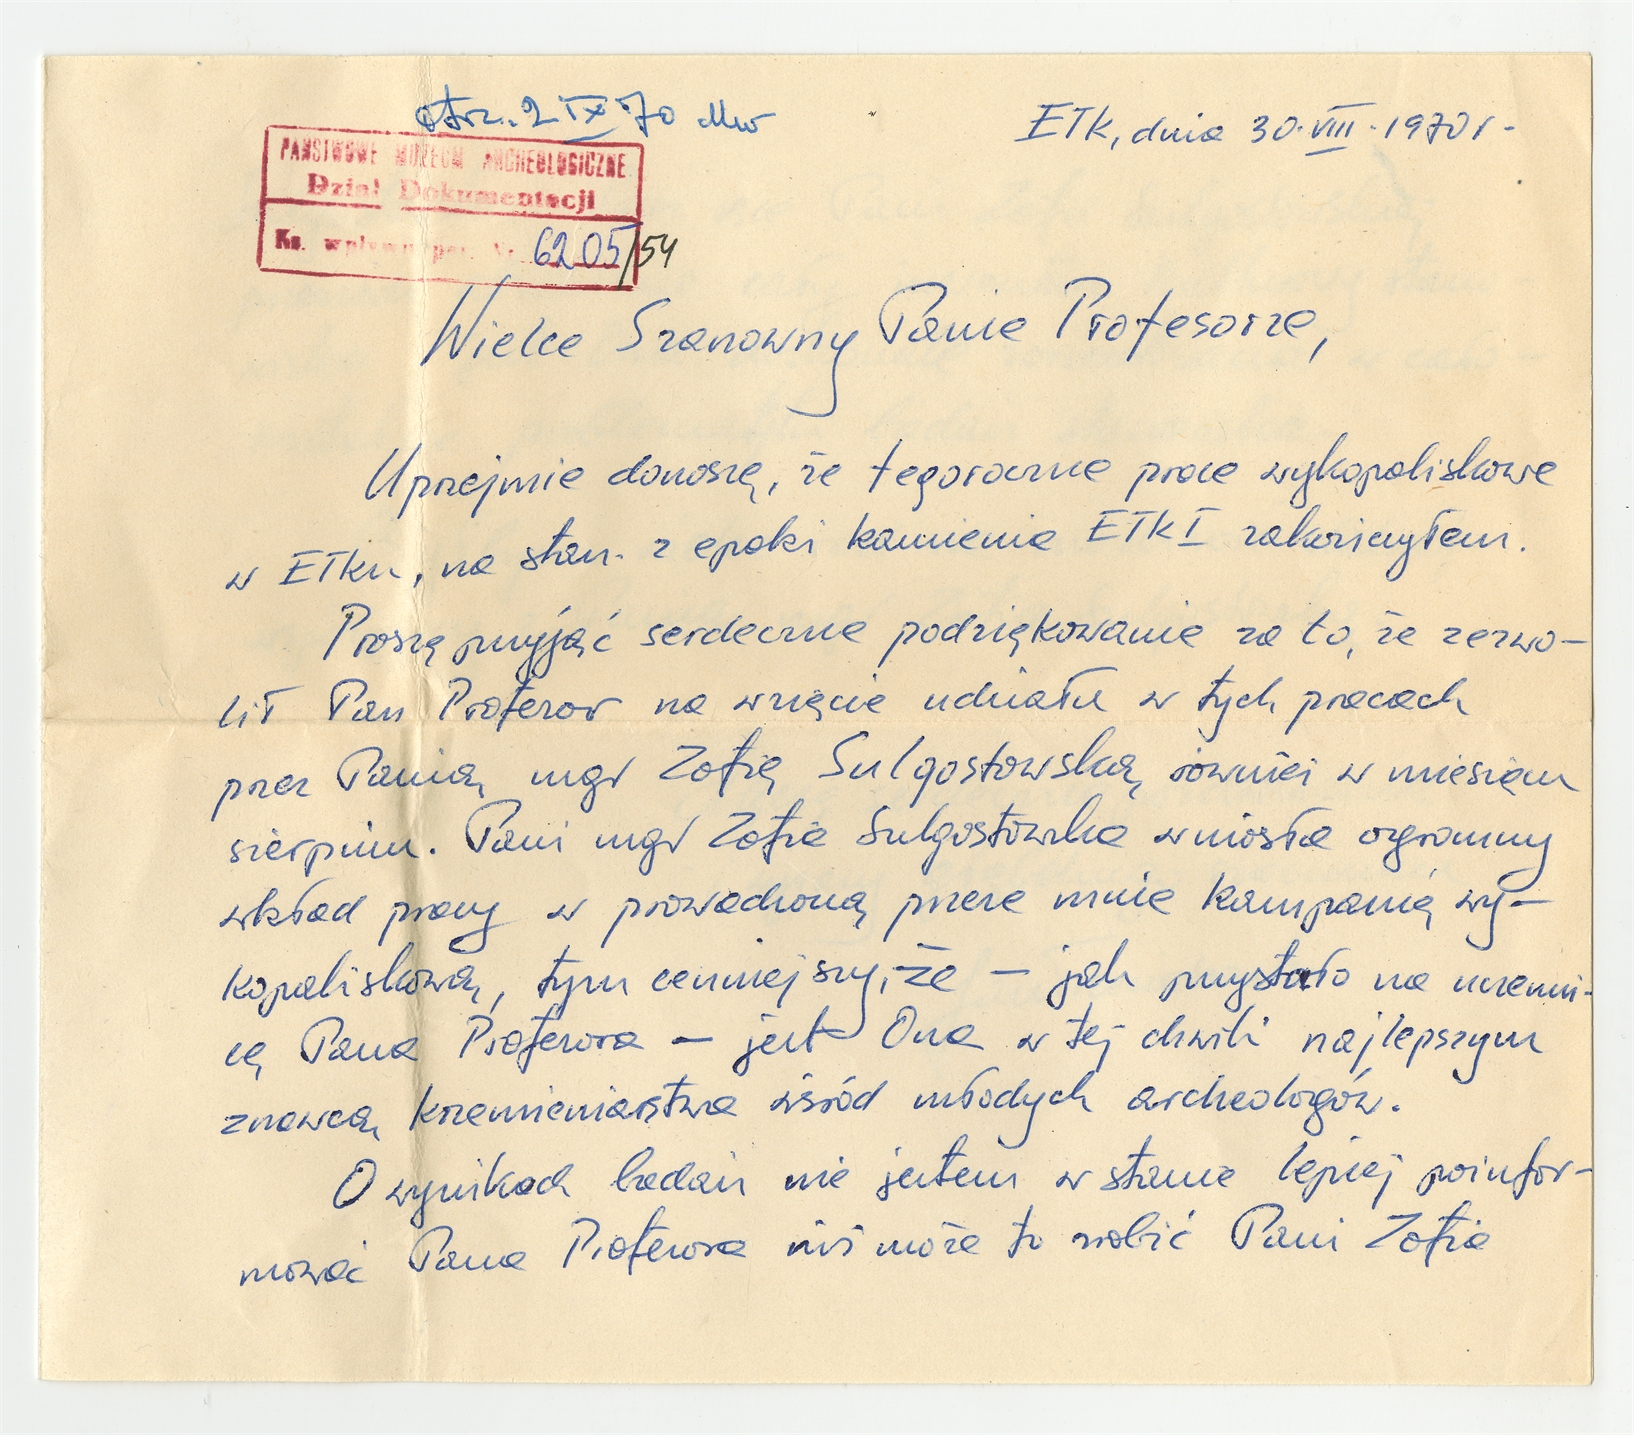 otrz. 2 IX 70
Ełk, dnia 30.VIII.1970 r.
PAŃSTWOWE MUZEUM ARCHEOLOGICZNE
Dział Dokumentacji
Ks. wpływu poz. Nr. 6205/54
Wielce Szanowny Panie Profesorze,
Uprzejmie donoszę, że tegoroczne prace wykopaliskowe
w Ełku, na stan. z epoki kamienia Ełk I zakończyłem.
Proszę przyjąć serdeczne podziękowanie za to, że zezwo-
lił Pan Profesor na wzięcie udziału w tych pracach
przez Panią mgr Zofię Sulgostowską również w miesiącu
sierpniu. Pani mgr Zofia Sulgostowska wniosła ogromny
wkład pracy w prowadzoną przeze mnie kampanię wy-
kopaliskową, tym cenniejszy, że - jak przystało na uczenni-
cę Pana Profesora - jest Ona w tej chwili najlepszym
znawcą krzemieniarstwa wśród młodych archeologów.
O wynikach badań nie jestem w stanie lepiej poinfor-
mować Pana Profesora niż może to zrobić Pani Zofia